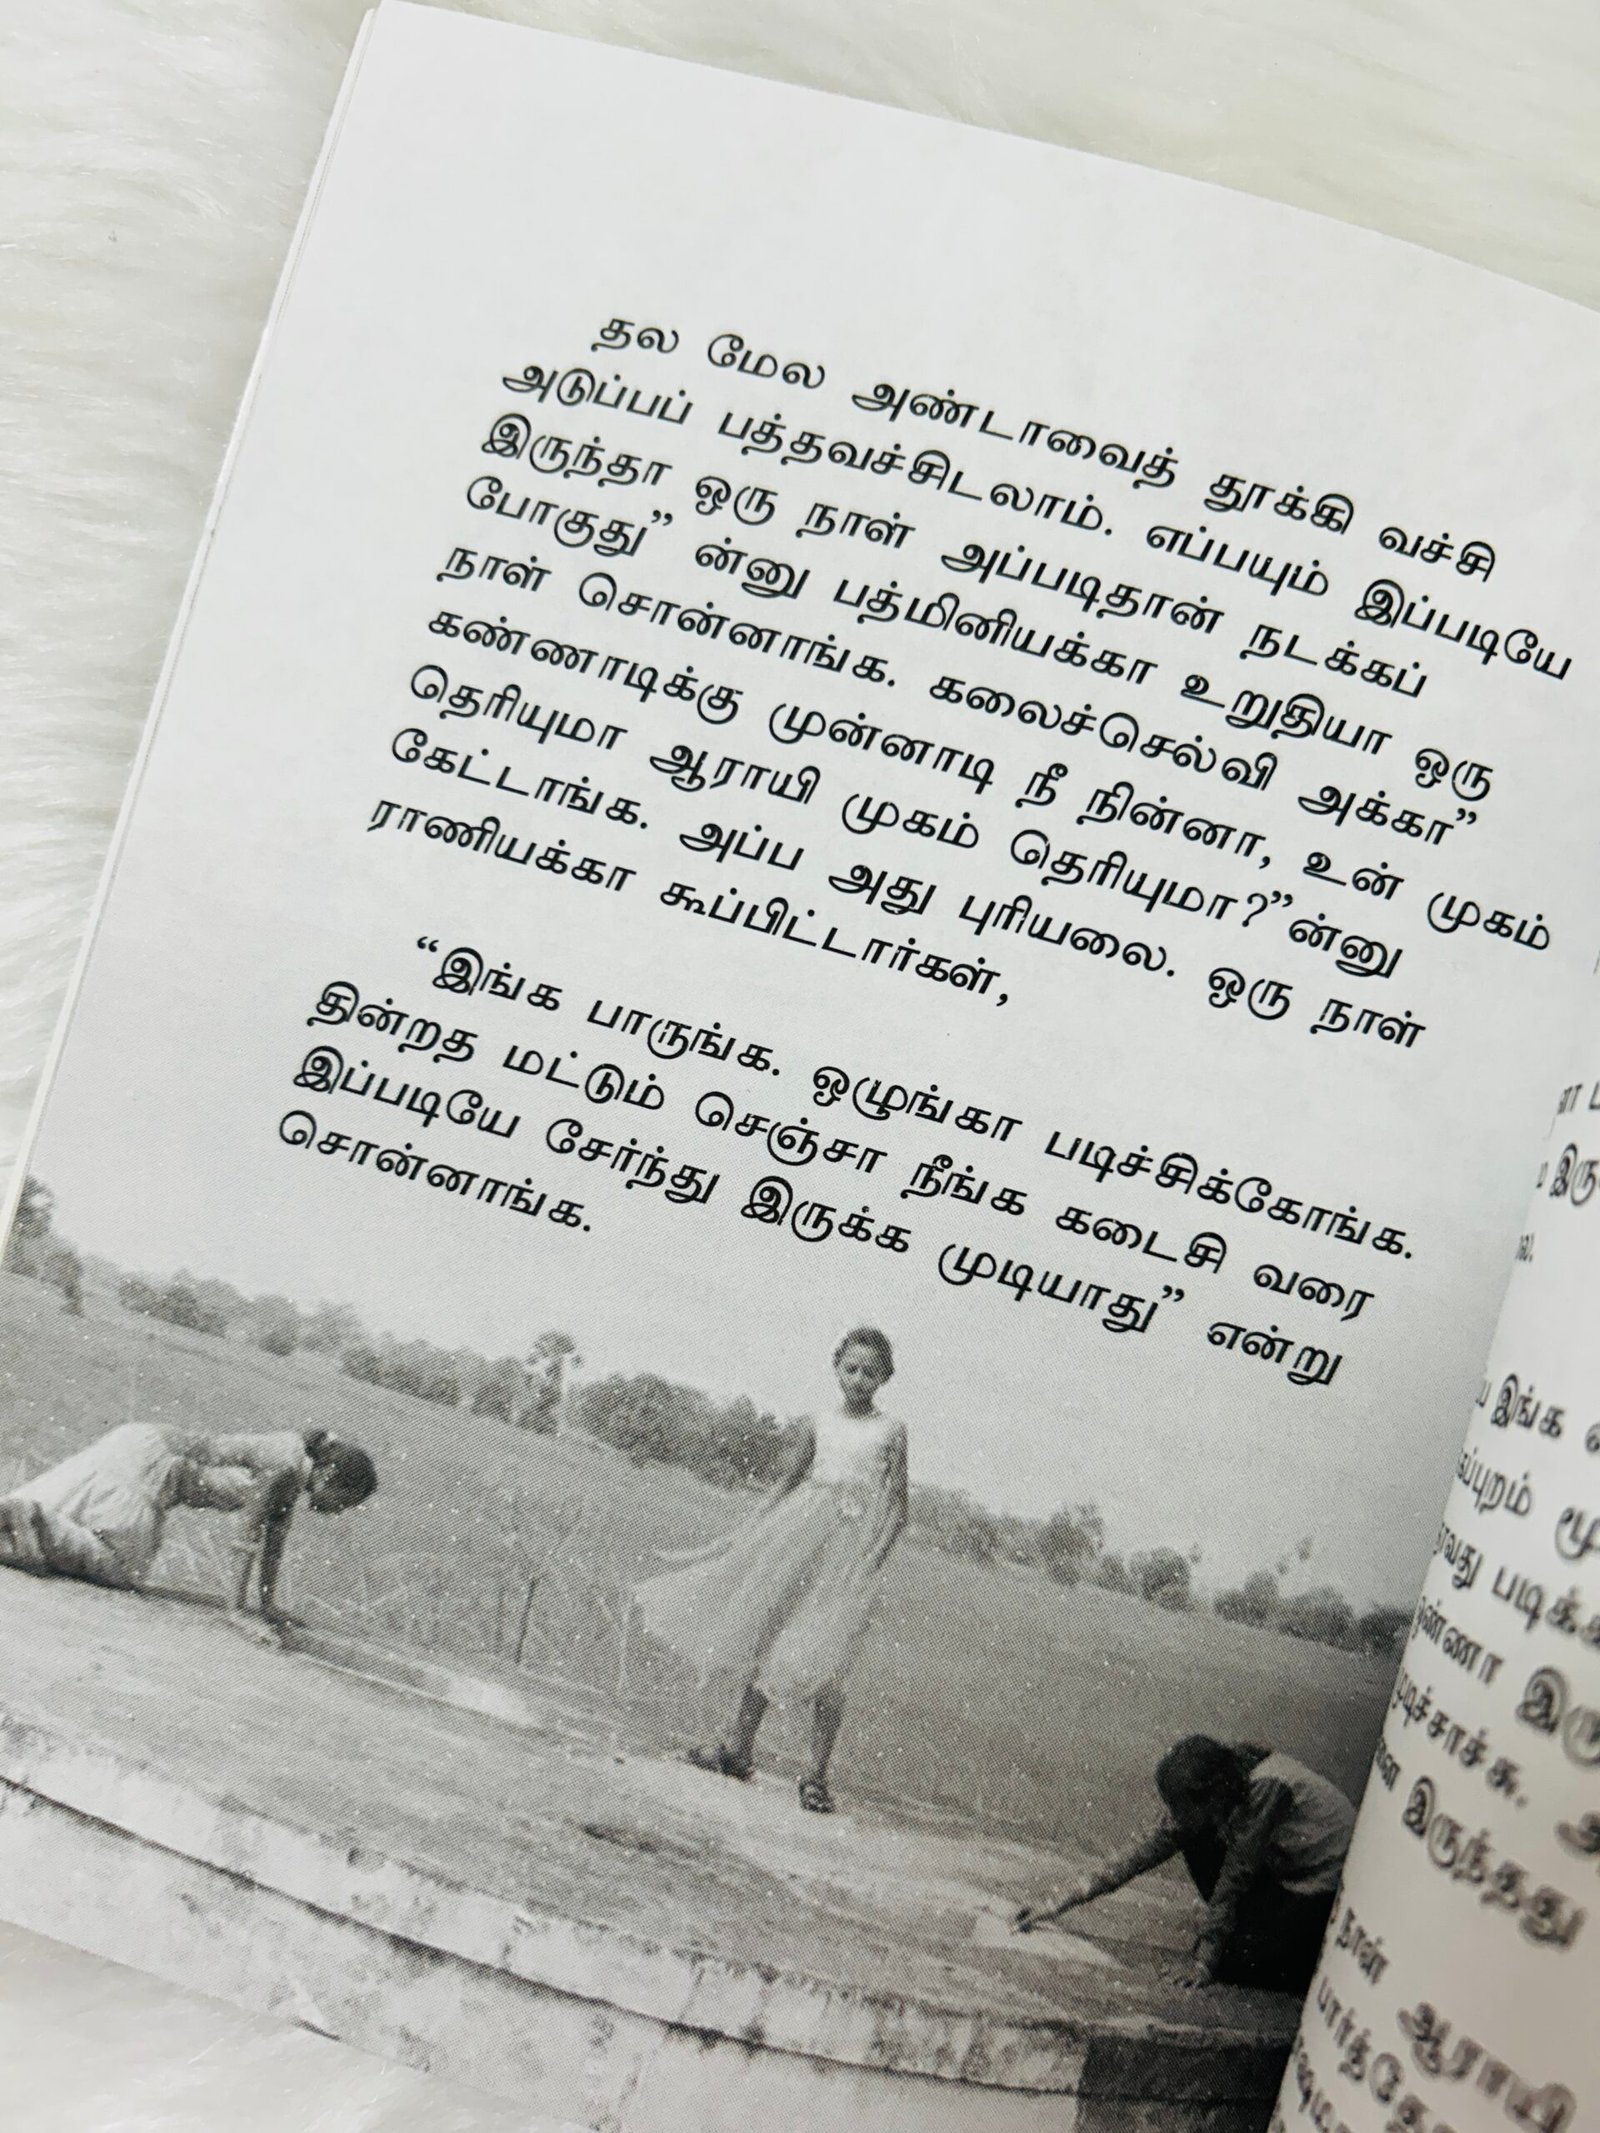 தல மேல அண்டாவைத் தூக்கி வச்சி
அடுப்பப் பத்தவச்சிடலாம். எப்பயும் இப்படியே
இருந்தா ஒரு நாள் அப்படிதான் நடக்கப்
போகுது” ன்னு பத்மினியக்கா உறுதியா ஒரு
நாள் சொன்னாங்க. கலைச்செல்வி அக்கா”
கண்ணாடிக்கு முன்னாடி நீ நின்னா, உன் முகம்
தெரியுமா ஆராயி முகம் தெரியுமா?”ன்னு
கேட்டாங்க. அப்ப அது புரியலை. ஒரு நாள்
ராணியக்கா கூப்பிட்டார்கள்,
“இங்க பாருங்க. ஒழுங்கா படிச்சிக்கோங்க.
தின்றத மட்டும் செஞ்சா நீங்க கடைசி வரை
இப்படியே சேர்ந்து இருக்க முடியாது” என்று
சொன்னாங்க.
இங்க
இருந்தது
நாள்
ஆராயி